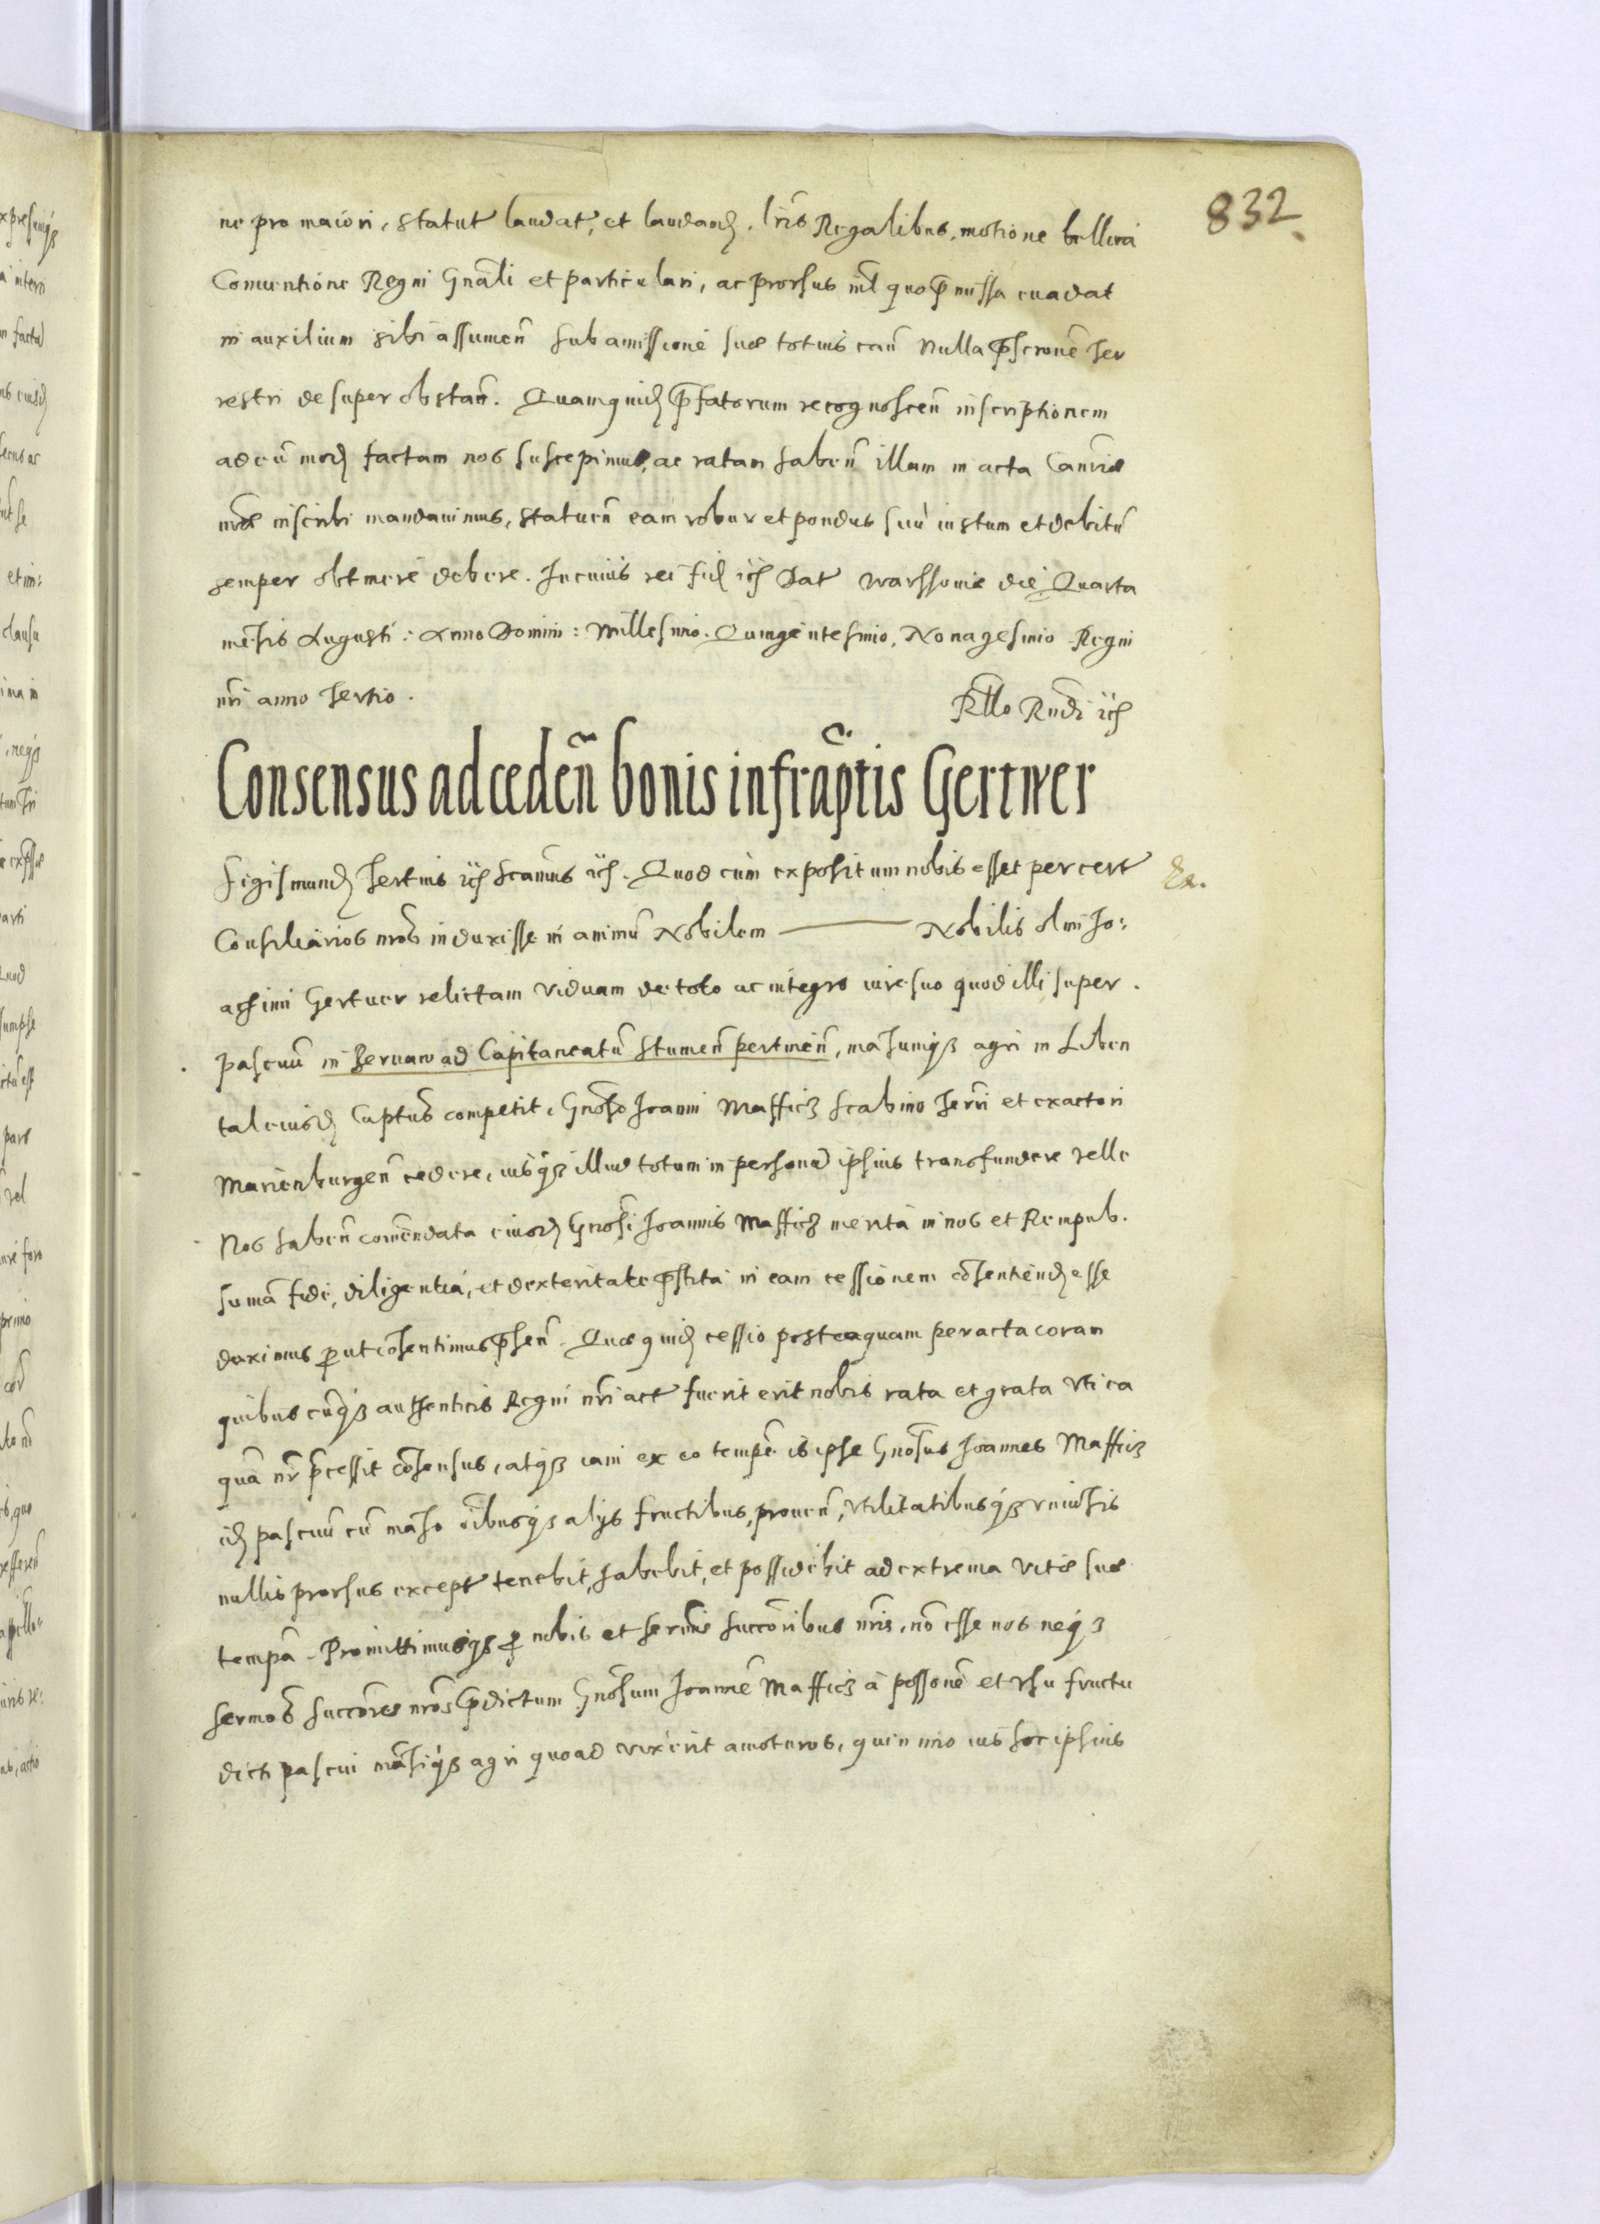 832
ne pro maiori, statut laudat, et laudand. lris Regalibus, motione bellica
Conventione Regni Gnali et particulari, ac prorsus nil quo pmissa euadat
in auxilium sibi assumen sub amissione sue totius cau Nulla pscrone ter
restri desuper obstan. Quamquid pfatorum recognoscen inscriptionem
ad eu mod factam nos suscepimus, ac ratam haben illam in acta Canrie
nre inscribi mandauimus, statuen eam robur et pondus suu iustum et debitu
semper obtinere debere. In cuius rei fid ich Dat Warssouie die Quarta
mensis Augusti: Anno Domini: Millesimo. Quingentesimo, Nonagesimo Regni
nri anno tertio.
Rllo Rndi ich
Consensus ad ceden bonis infraptis Gertner
Sigismund tertius ich Scamus ich. Quod cum expositum nobis esset per cert
Consiliarios nros induxisse in animu Nobilem Nobilis olim Jo:
achimi Gertner relictam viduam de toto ac integro iure suo quod illi super
pascuu in ad Capitaneatu Stumen pertinen, mansumq agri in Liben
tal eiusd Captus competit, Gnoso Joanni Mafficz scabino terri et exactori
Marienburgen cedere, iusq illud totum in persona ipsius transfundere velle
Nos haben comendata eiusd Gnosi Joannis Mafficz merita in nos et Rempub.
suma fide, diligentia, et dexteritate pstita in eam cessionem cosentiend esse
duximus put cosentimus psen. Que quid cessio posteaquam peracta coram
quibuscuq authenticis Regni nri act fuerit erit nobis rata et grata vti ca
qua nr pcessit cosensus, atq iam ex eo tempe is ipse Gnosus Joannes Mafficz
id pascuu cu manso oibusq alys fructibus, prouen, vtilitatibusq vniuersis
nullis prorsus except tenebit, habebit, et possidebit ad extrema vite sue
tempa. Promittimusq p nobis et sermis succoribus nris, no esse nos neq
sermos succores nros pdictum Gnosum Joanne Mafficz a possone et vsu fructu
dicti pascui mansiq agri quoad vixerit amoturos, quin imo ius hoc ipsius